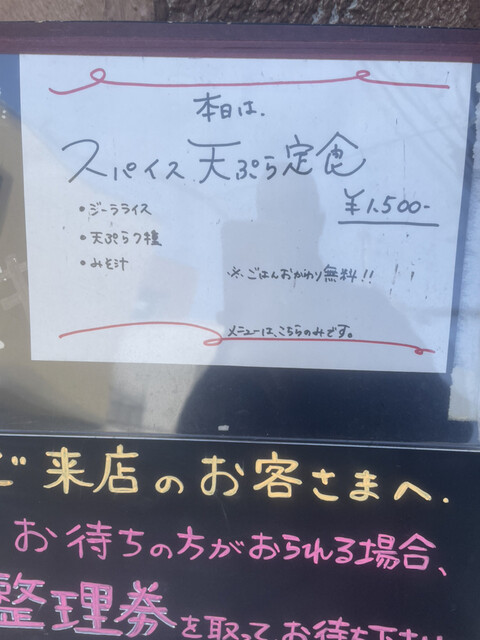 本日は、
スパイス天ぷら定食
¥1,500-
・ジーラライス
・天ぷら7種
・みそ汁
※ごはんおかわり無料!!
メニューは、こちらのみです。
ご来店のお客さまへ.
お待ちの方がおられる場合、
整理券を取って、お待ち下さ